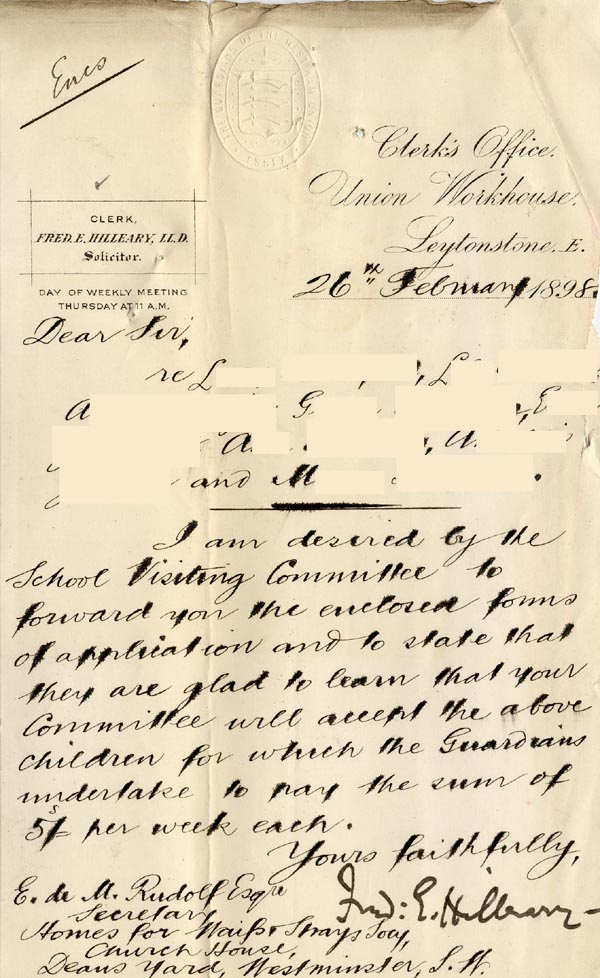 Encs
THE GUARDIANS OF THE WEST HAM UNION
ESSEX
Clerk's Office.
Union Workhouse.
Leytonstone. E.
CLERK,
FRED. E. HILLEARY, LL.D.
Solicitor.
DAY OF WEEKLY MEETING
THURSDAY AT 11 A.M.
26th February 1898.
Dear Sir,
re L , L
A G , E
A , A
and M .
I am desired by the
School Visiting Committee to
forward you the enclosed forms
of application and to state that
they are glad to learn that your
Committee will accept the above
children for which the Guardians
undertake to pay the sum of
5s/- per week each.
Yours faithfully,
Fred: E. Hilleary
E. de M. Rudolf Esqre
Secretary
Homes for Waifs & Strays Socy,
Church House,
Deans Yard, Westminster, S.W.